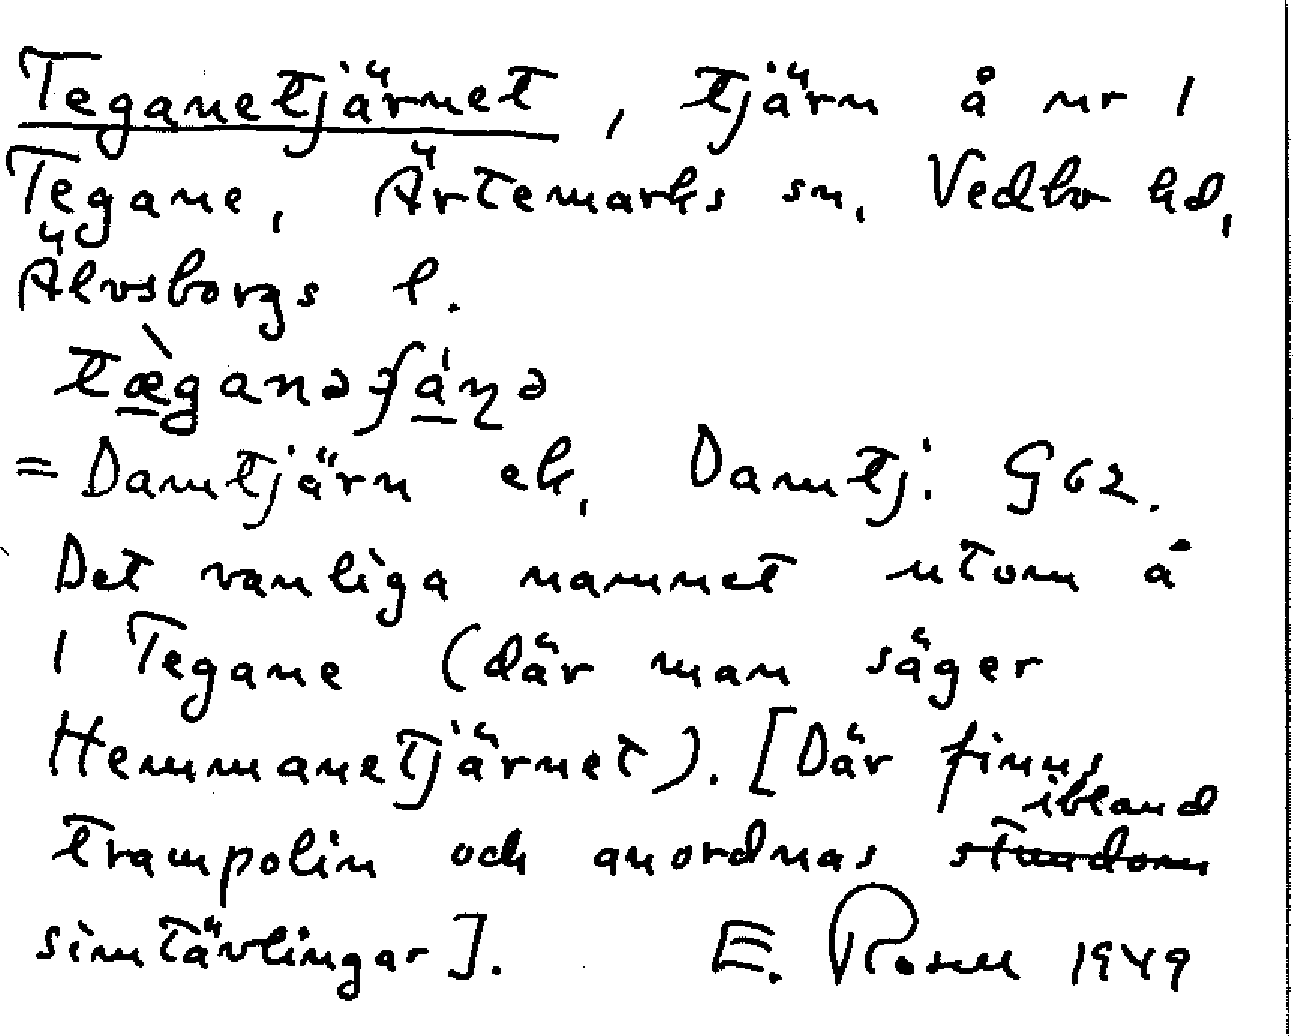 Teganetjärnet, tjärn å nr 1
Tegane, Ärtemarks sn, Vedbo hd,
Älvsborgs l.
= Damtjärn ek, Damtj. G62.
Det vanliga namnet utom å
1 Tegane (där man säger
Hemmanetjärnet). [Där finns
ibland
trampolin och anordnas stundom
simtävlingar]. E. Rosell 1949